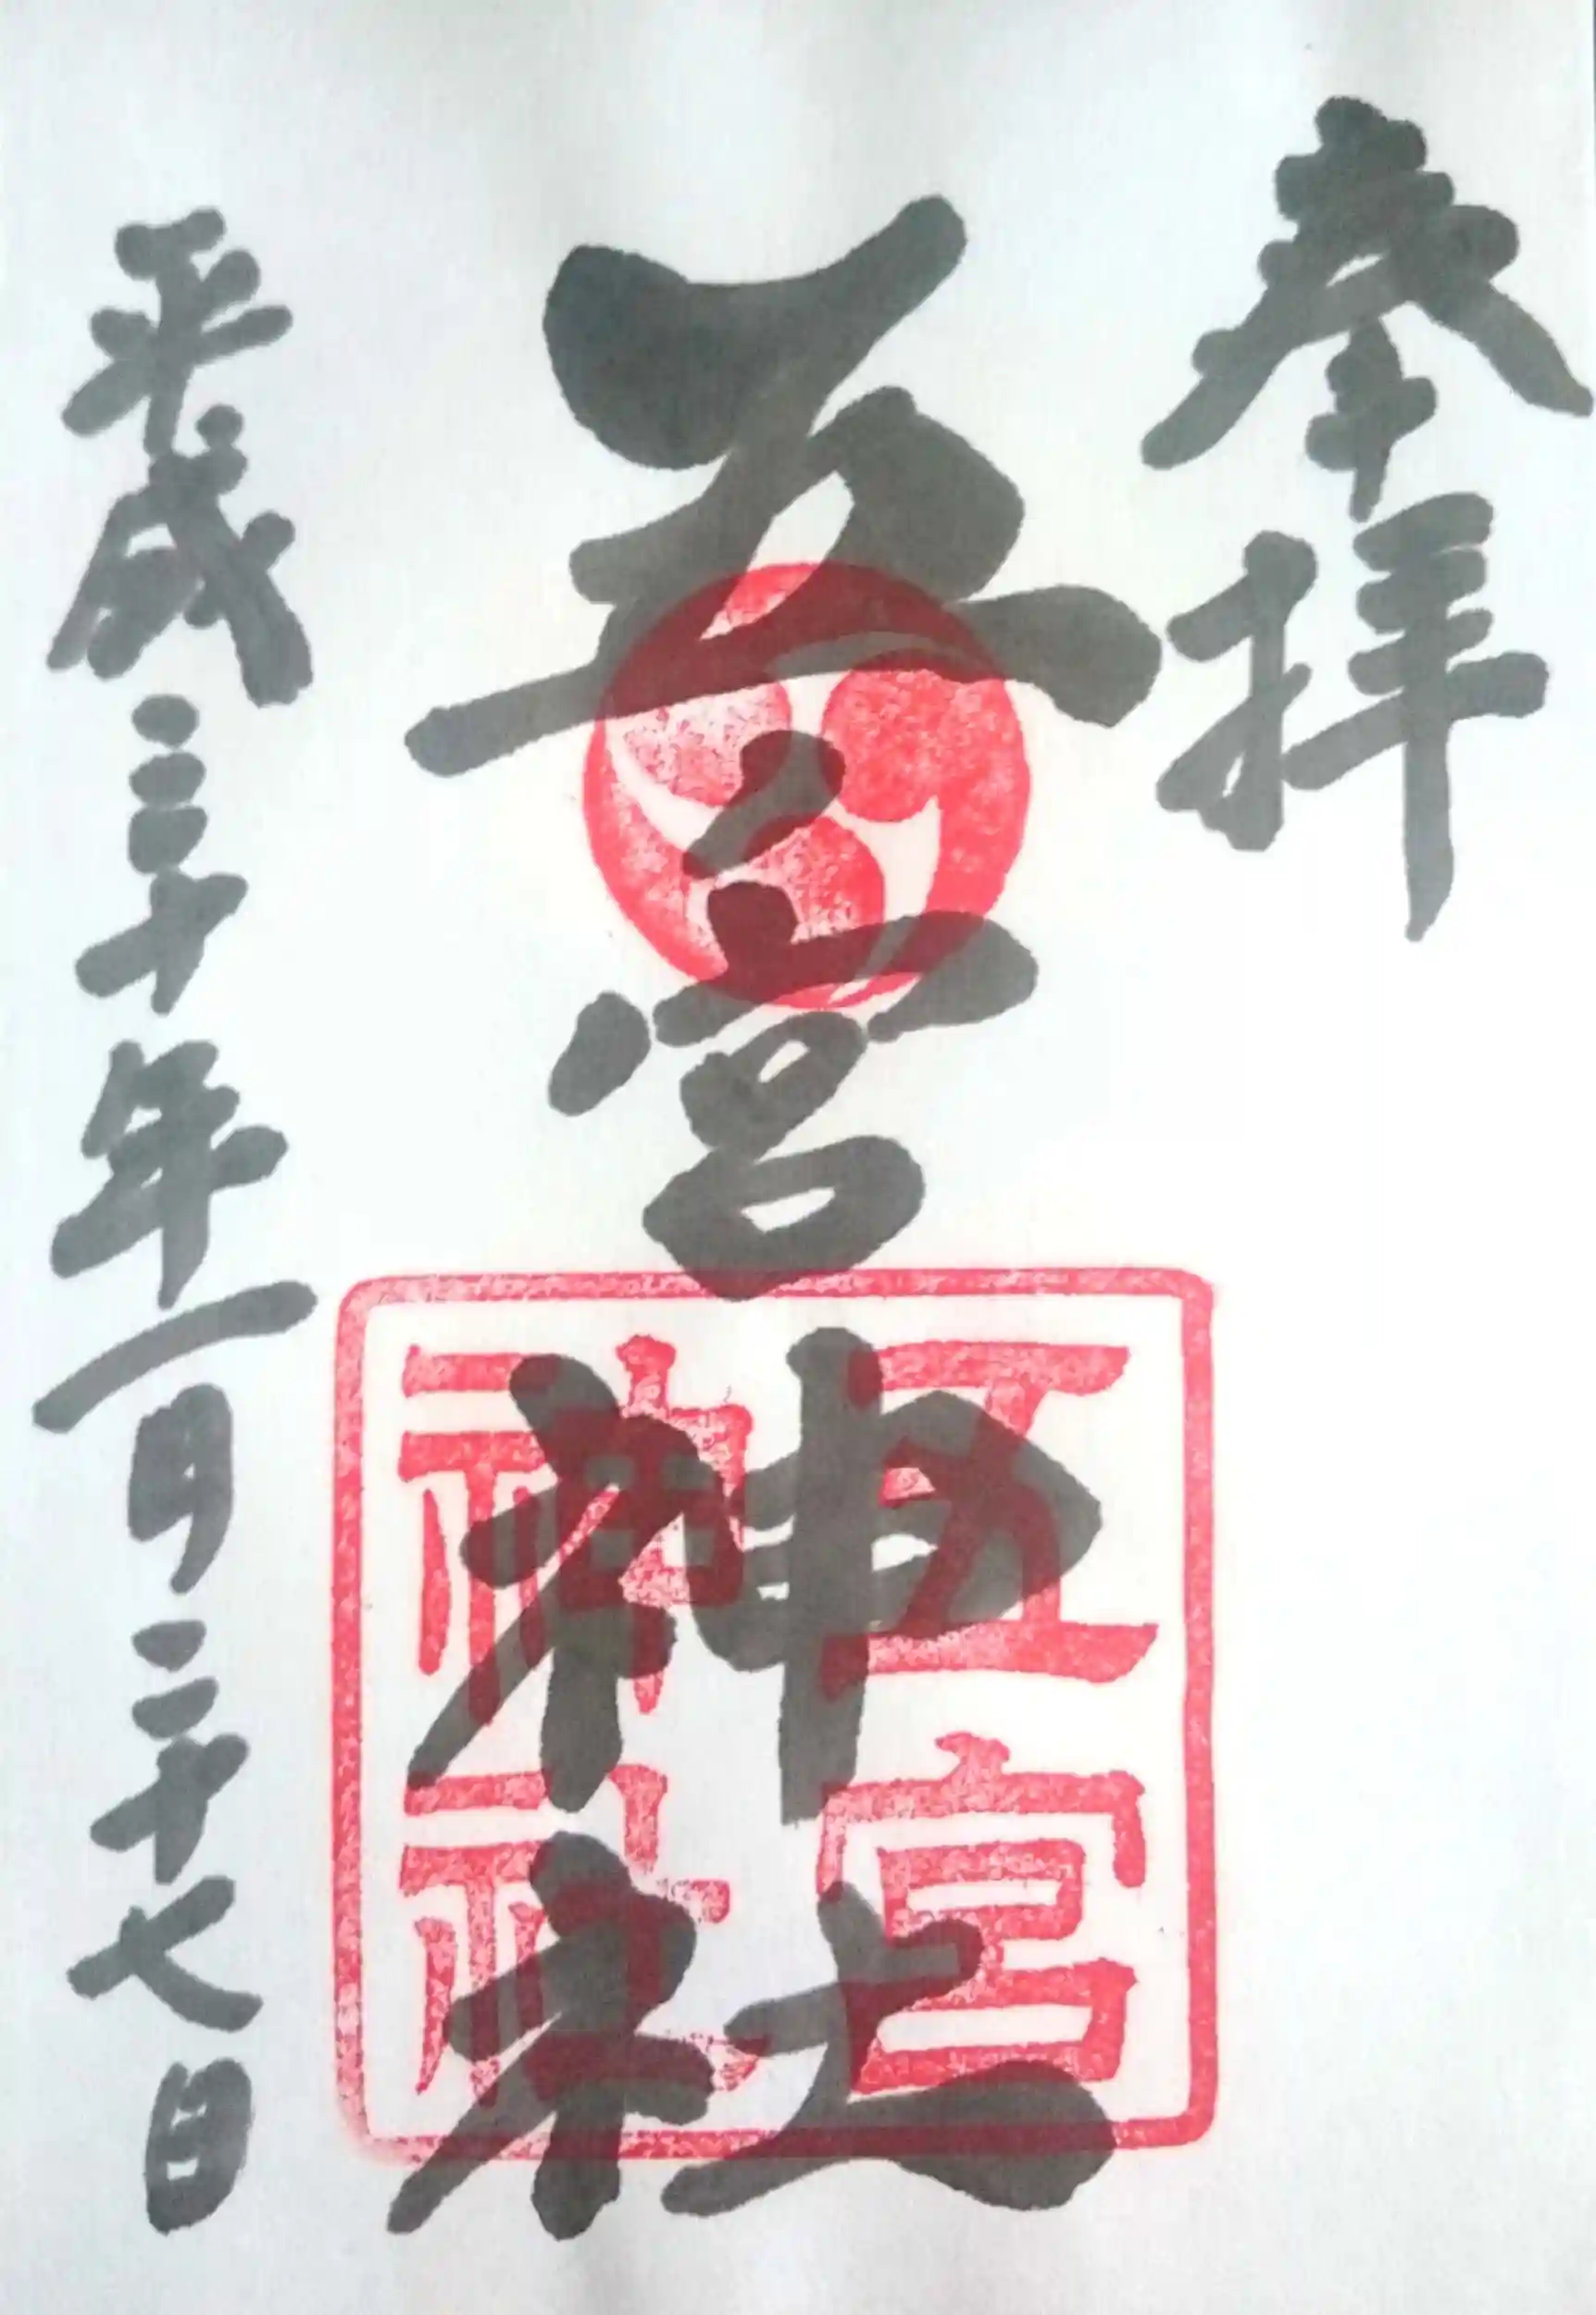 奉拝
五ノ宮神社
五宮
神社
平成三十年一月二十七日